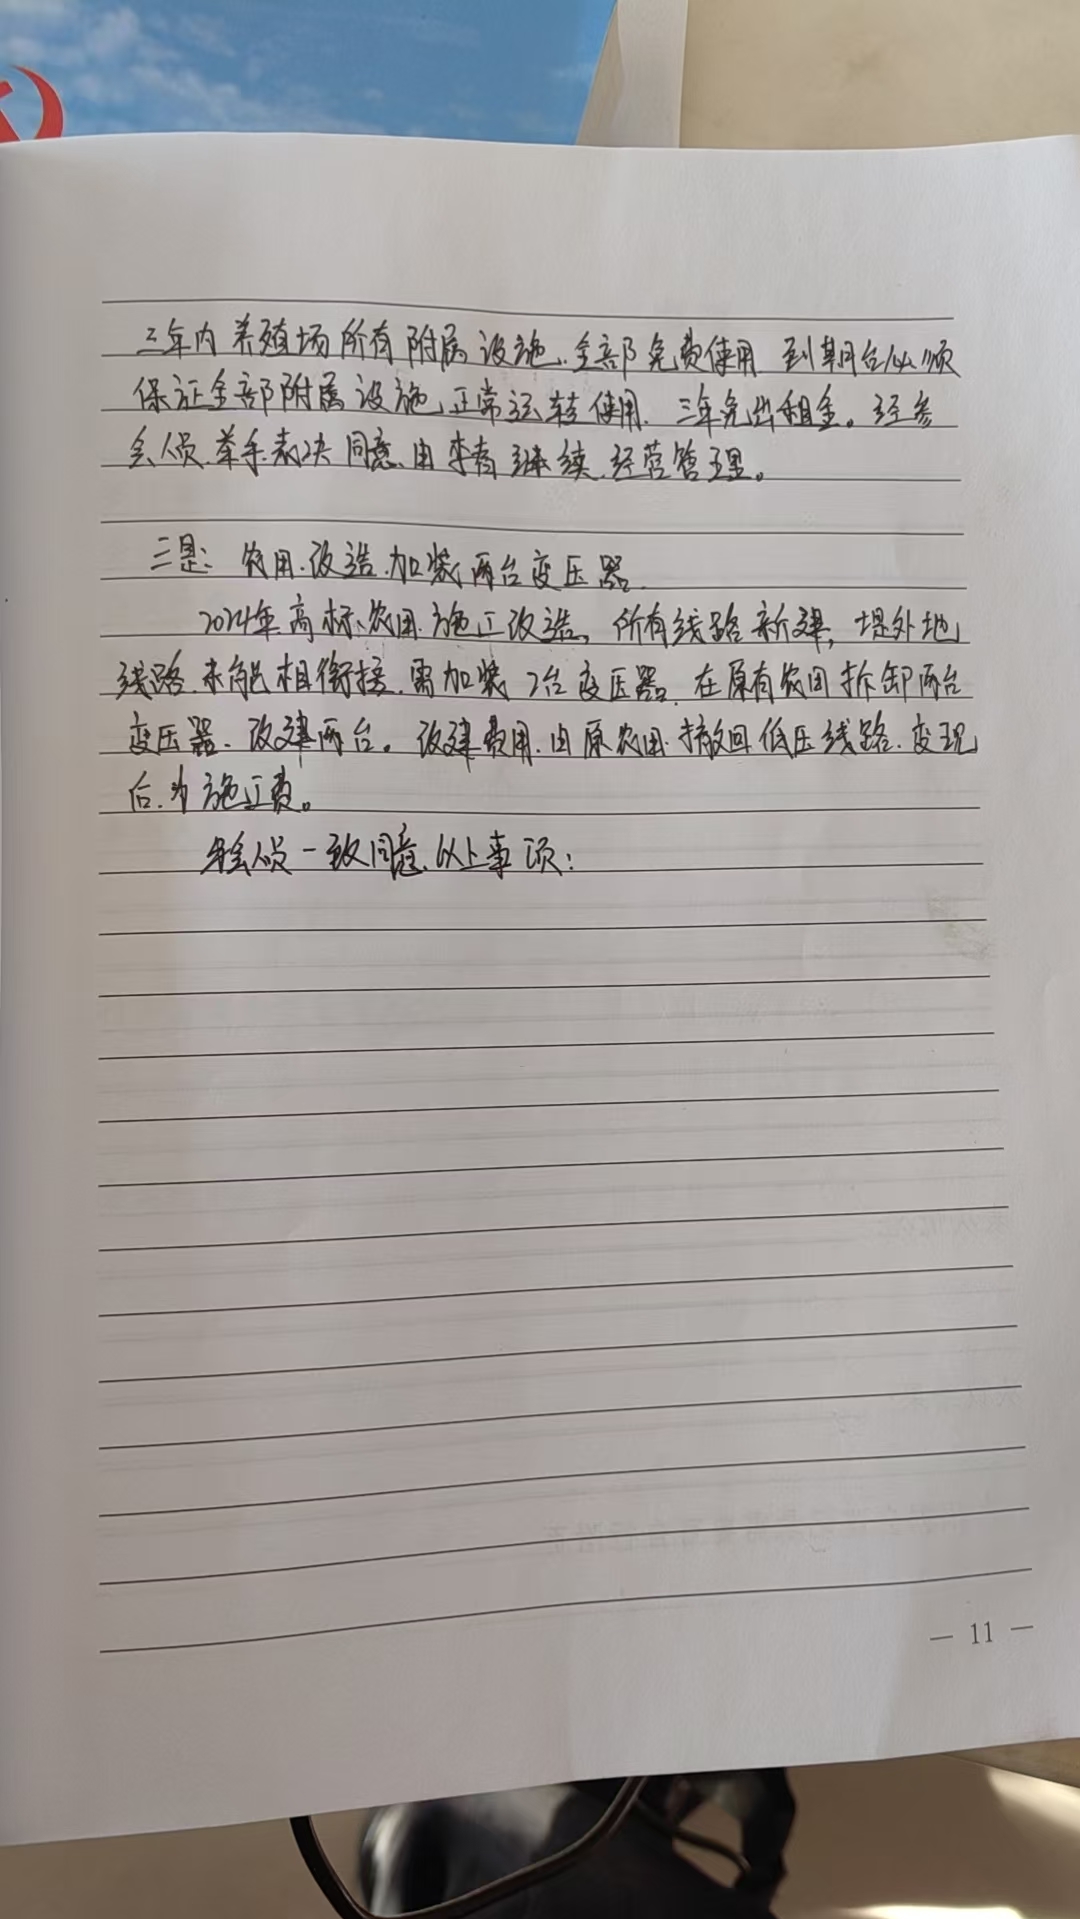 三年内养殖场所有附属设施.全部免费使用 到期后必须
保证全部附属设施正常运转使用.三年免出租金。经参
会人员.举手表决同意.由李春继续.经营管理。
三是：农田.改造.加装两台变压器.
2024年高标农田.施工改造，所有线路新建，堤外地
线路.未能相衔接.需加装2台变压器.在原有农田拆卸两台
变压器.改建两台。改建费用.由原农田.撤回低压线路.变现
后.为施工费。
会人员一致同意.以上事项：
— 11 —